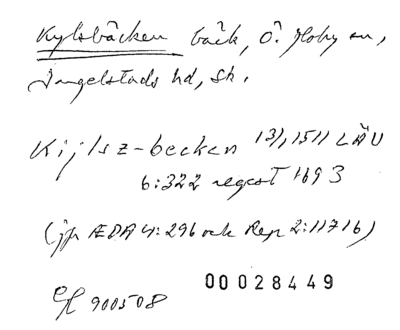 Kylsbäcken bäck, Ö. Hoby sn,
Ingelstads hd, Sk.
Kijlsz-becken 13/1 1511 LÄU
6:322 regest 1693
(jfr ÆDA 4:296 och Rep 2:11716)
900508
00028449